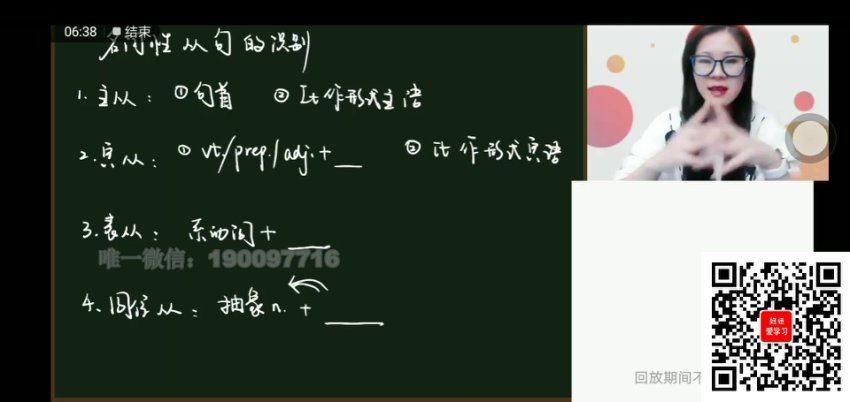 06:38 结束
名词性从句的识别
1. 主从: ①句首 ② It作形式主语
2. 宾从: ① vt./prep./adj.+ __ ② it 作形式宾语
3. 表从: 系动词 + __
唯一微信：190097716
4. 同位从: 抽象n. + __
妞妞
爱学习
回放期间不